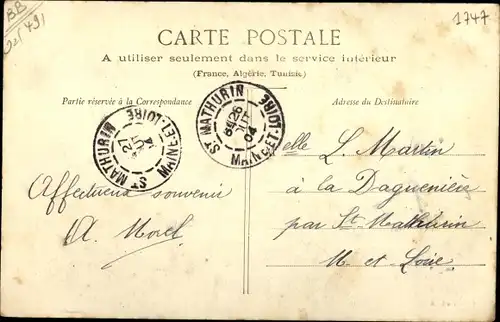 BB
1747
CARTE POSTALE
A utiliser seulement dans le service intérieur
(France, Algérie, Tunisie.)
Partie réservée à la Correspondance
Adresse du Destinataire
ST MATHURIN
MAINE-ET-LOIRE
ST MATHURIN
MAINE-ET-LOIRE
Affectueux souvenir
A. Morel
elle L. Martin
à la Daguenière
par St Mathurin
M. et Loire